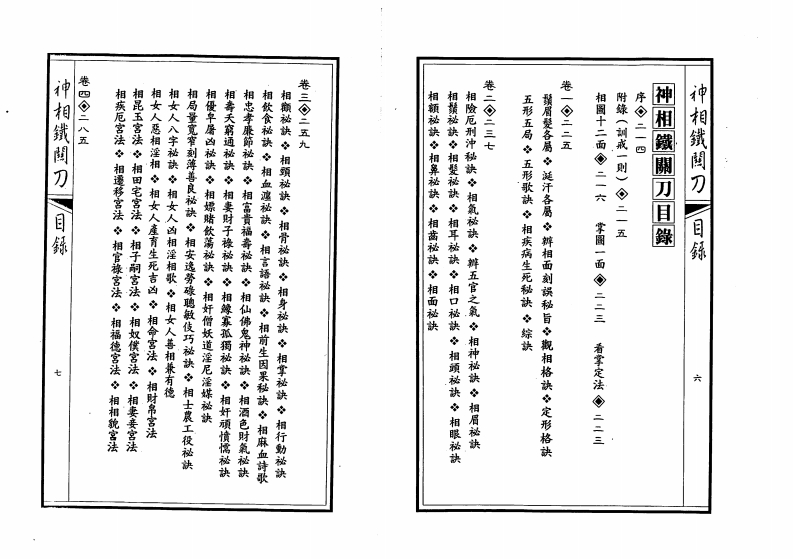 神相鐵關刀 目錄
六
神相鐵關刀目錄
序◈二一四
附錄(訓戒一則)◈二一五
相圖十二面◈二一六 掌圖一面◈二二三 看掌定法◈二二三
卷一◈二二五
鬚眉髮各屬❖涎汗各屬❖辨相面刻誤秘旨❖觀相格訣❖定形格訣
五形五局❖五形歌訣❖相疾病生死秘訣❖綜訣
卷二◈二三七
相險厄刑沖秘訣❖相氣祕訣❖辨五官之氣❖相神祕訣❖相眉祕訣
相鬚祕訣❖相髮祕訣❖相耳祕訣❖相口祕訣❖相頭祕訣❖相眼祕訣
相額祕訣❖相鼻祕訣❖相齒祕訣❖相面祕訣
神相鐵關刀 目錄
七
卷三◈二五九
相顴祕訣❖相頸祕訣❖相骨祕訣❖相身祕訣❖相掌祕訣❖相行動祕訣
相飲食祕訣❖相血瀘祕訣❖相言語祕訣❖相前生因果秘訣❖相麻血詩歌
相忠孝廉節祕訣❖相富貴福壽祕訣❖相仙佛鬼神祕訣❖相酒色財氣祕訣
相壽夭窮通祕訣❖相妻財子祿祕訣❖相鰥寡孤獨祕訣❖相奸頑憤懦祕訣
相優卑屬凶祕訣❖相嫖賭飲蕩祕訣❖相奸僧妖道淫尼淫媒祕訣
相局量寬窄刻薄善良祕訣❖相安逸勞碌聰敏伎巧祕訣❖相士農工役祕訣
相女人八字祕訣❖相女人凶相淫相歌❖相女人善相兼有德
相女人惡相淫相❖相女人產育生死吉凶❖相命宮法❖相財帛宮法
相昆玉宮法❖相田宅宮法❖相子嗣宮法❖相奴僕宮法❖相妻妾宮法
相疾厄宮法❖相遷移宮法❖相官祿宮法❖相福德宮法❖相相貌宮法
卷四◈二八五